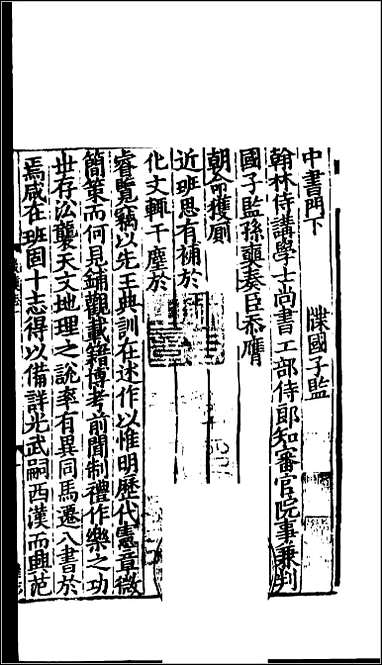 中書門下　牒國子監
翰林侍講學士尚書工部侍郎知審官院事兼判
國子監孫奭奏臣忝膺
朝命獲厠
近班思有補於
化文輒干塵於
睿覽竊以先王典訓在述作以惟明歷代憲章微
簡策而何見鋪觀載籍博考前聞制禮作樂之功
世存沿襲天文地理之說率有異同馬遷八書於
焉咸在班固十志得以備詳光武嗣西漢而興范